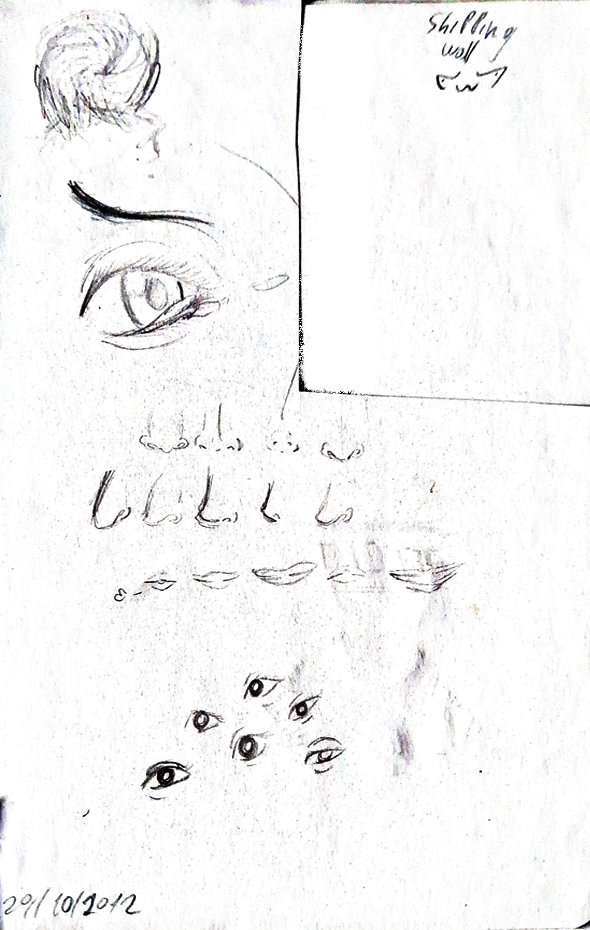 Shipping
wall
29/10/2012